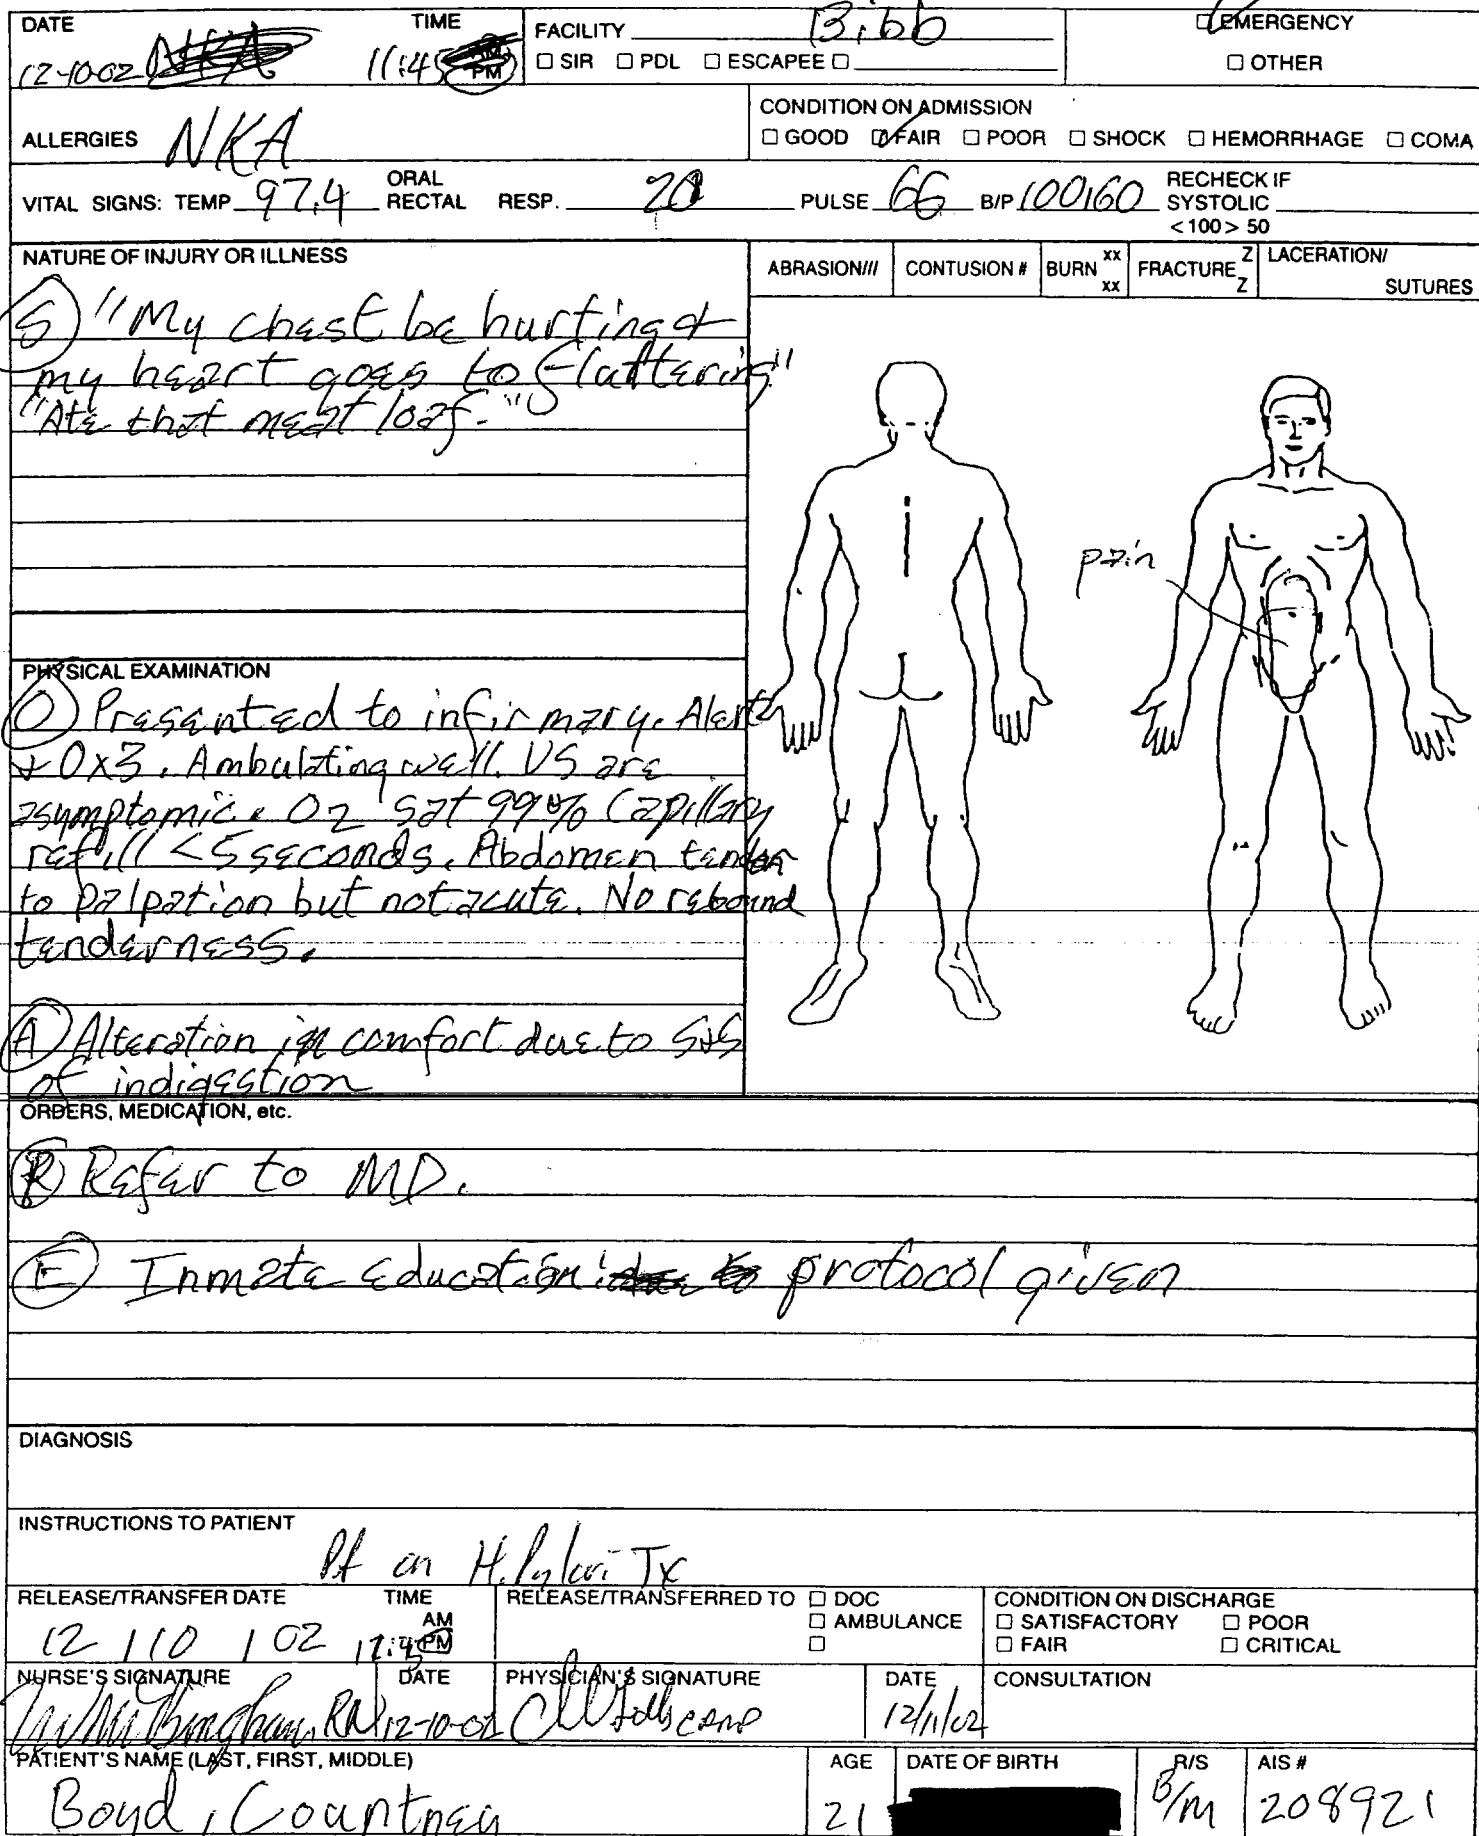 DATE TIME FACILITY Bibb ☑ EMERGENCY
12-10-02 11:45 PM ☐ SIR ☐ PDL ☐ ESCAPEE ☐ ☐ OTHER
ALLERGIES NKA
CONDITION ON ADMISSION
☐ GOOD ☑ FAIR ☐ POOR ☐ SHOCK ☐ HEMORRHAGE ☐ COMA
VITAL SIGNS: TEMP 97.4 ORAL RECTAL RESP. 20 PULSE 66 B/P 100/60 RECHECK IF SYSTOLIC <100> 50
NATURE OF INJURY OR ILLNESS
ABRASION/// CONTUSION # BURN xx xx FRACTURE Z Z LACERATION/ SUTURES
(S) "My chest be hurting &
my heart goes to flattering"
"Ate that meat loaf."
pain
PHYSICAL EXAMINATION
(O) Presented to infirmary. Alert
+ Ox3. Ambulating well. VS are
asymptomic. O2 sat 99% Capillary
refill <5 seconds. Abdomen tender
to palpation but not acute. No rebound
tenderness.
(A) Alteration in comfort due to S&S
of indigestion
ORDERS, MEDICATION, etc.
(P) Refer to MD.
(E) Inmate education protocol given
DIAGNOSIS
INSTRUCTIONS TO PATIENT
Pt on H. Pylori Tx
RELEASE/TRANSFER DATE TIME RELEASE/TRANSFERRED TO ☐ DOC CONDITION ON DISCHARGE
AM ☐ AMBULANCE ☐ SATISFACTORY ☐ POOR
12 / 10 / 02 PM ☐ ☐ FAIR ☐ CRITICAL
NURSE'S SIGNATURE DATE PHYSICIAN'S SIGNATURE DATE CONSULTATION
Bingham, RN 12-10-02 CRNP 12/11/02
PATIENT'S NAME (LAST, FIRST, MIDDLE) AGE DATE OF BIRTH R/S AIS #
Boyd, Courtney 21 B/M 208921